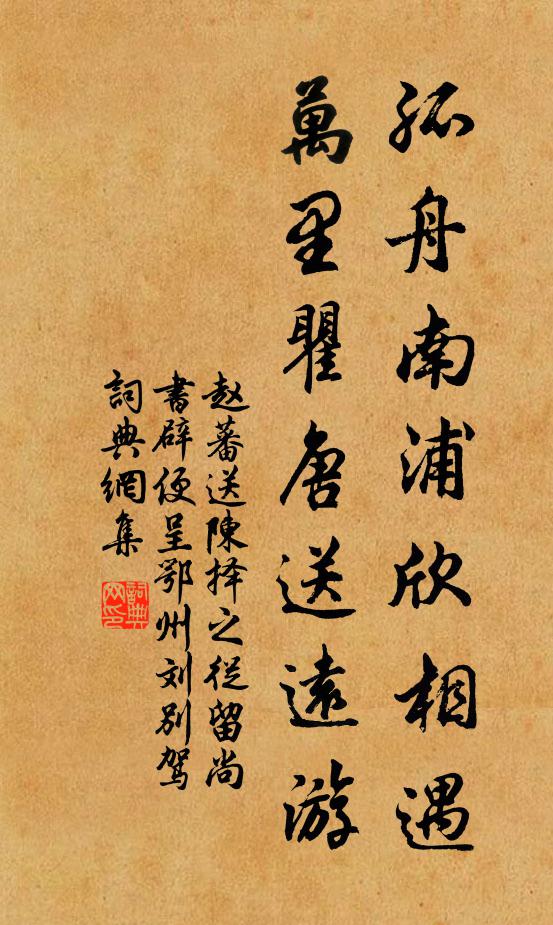 孤舟南浦欣相遇
萬里瞿唐送遠游
赵蕃送陳择之從留尚
書辟便呈鄂州刘别驾
詞典網集
詞典
网印